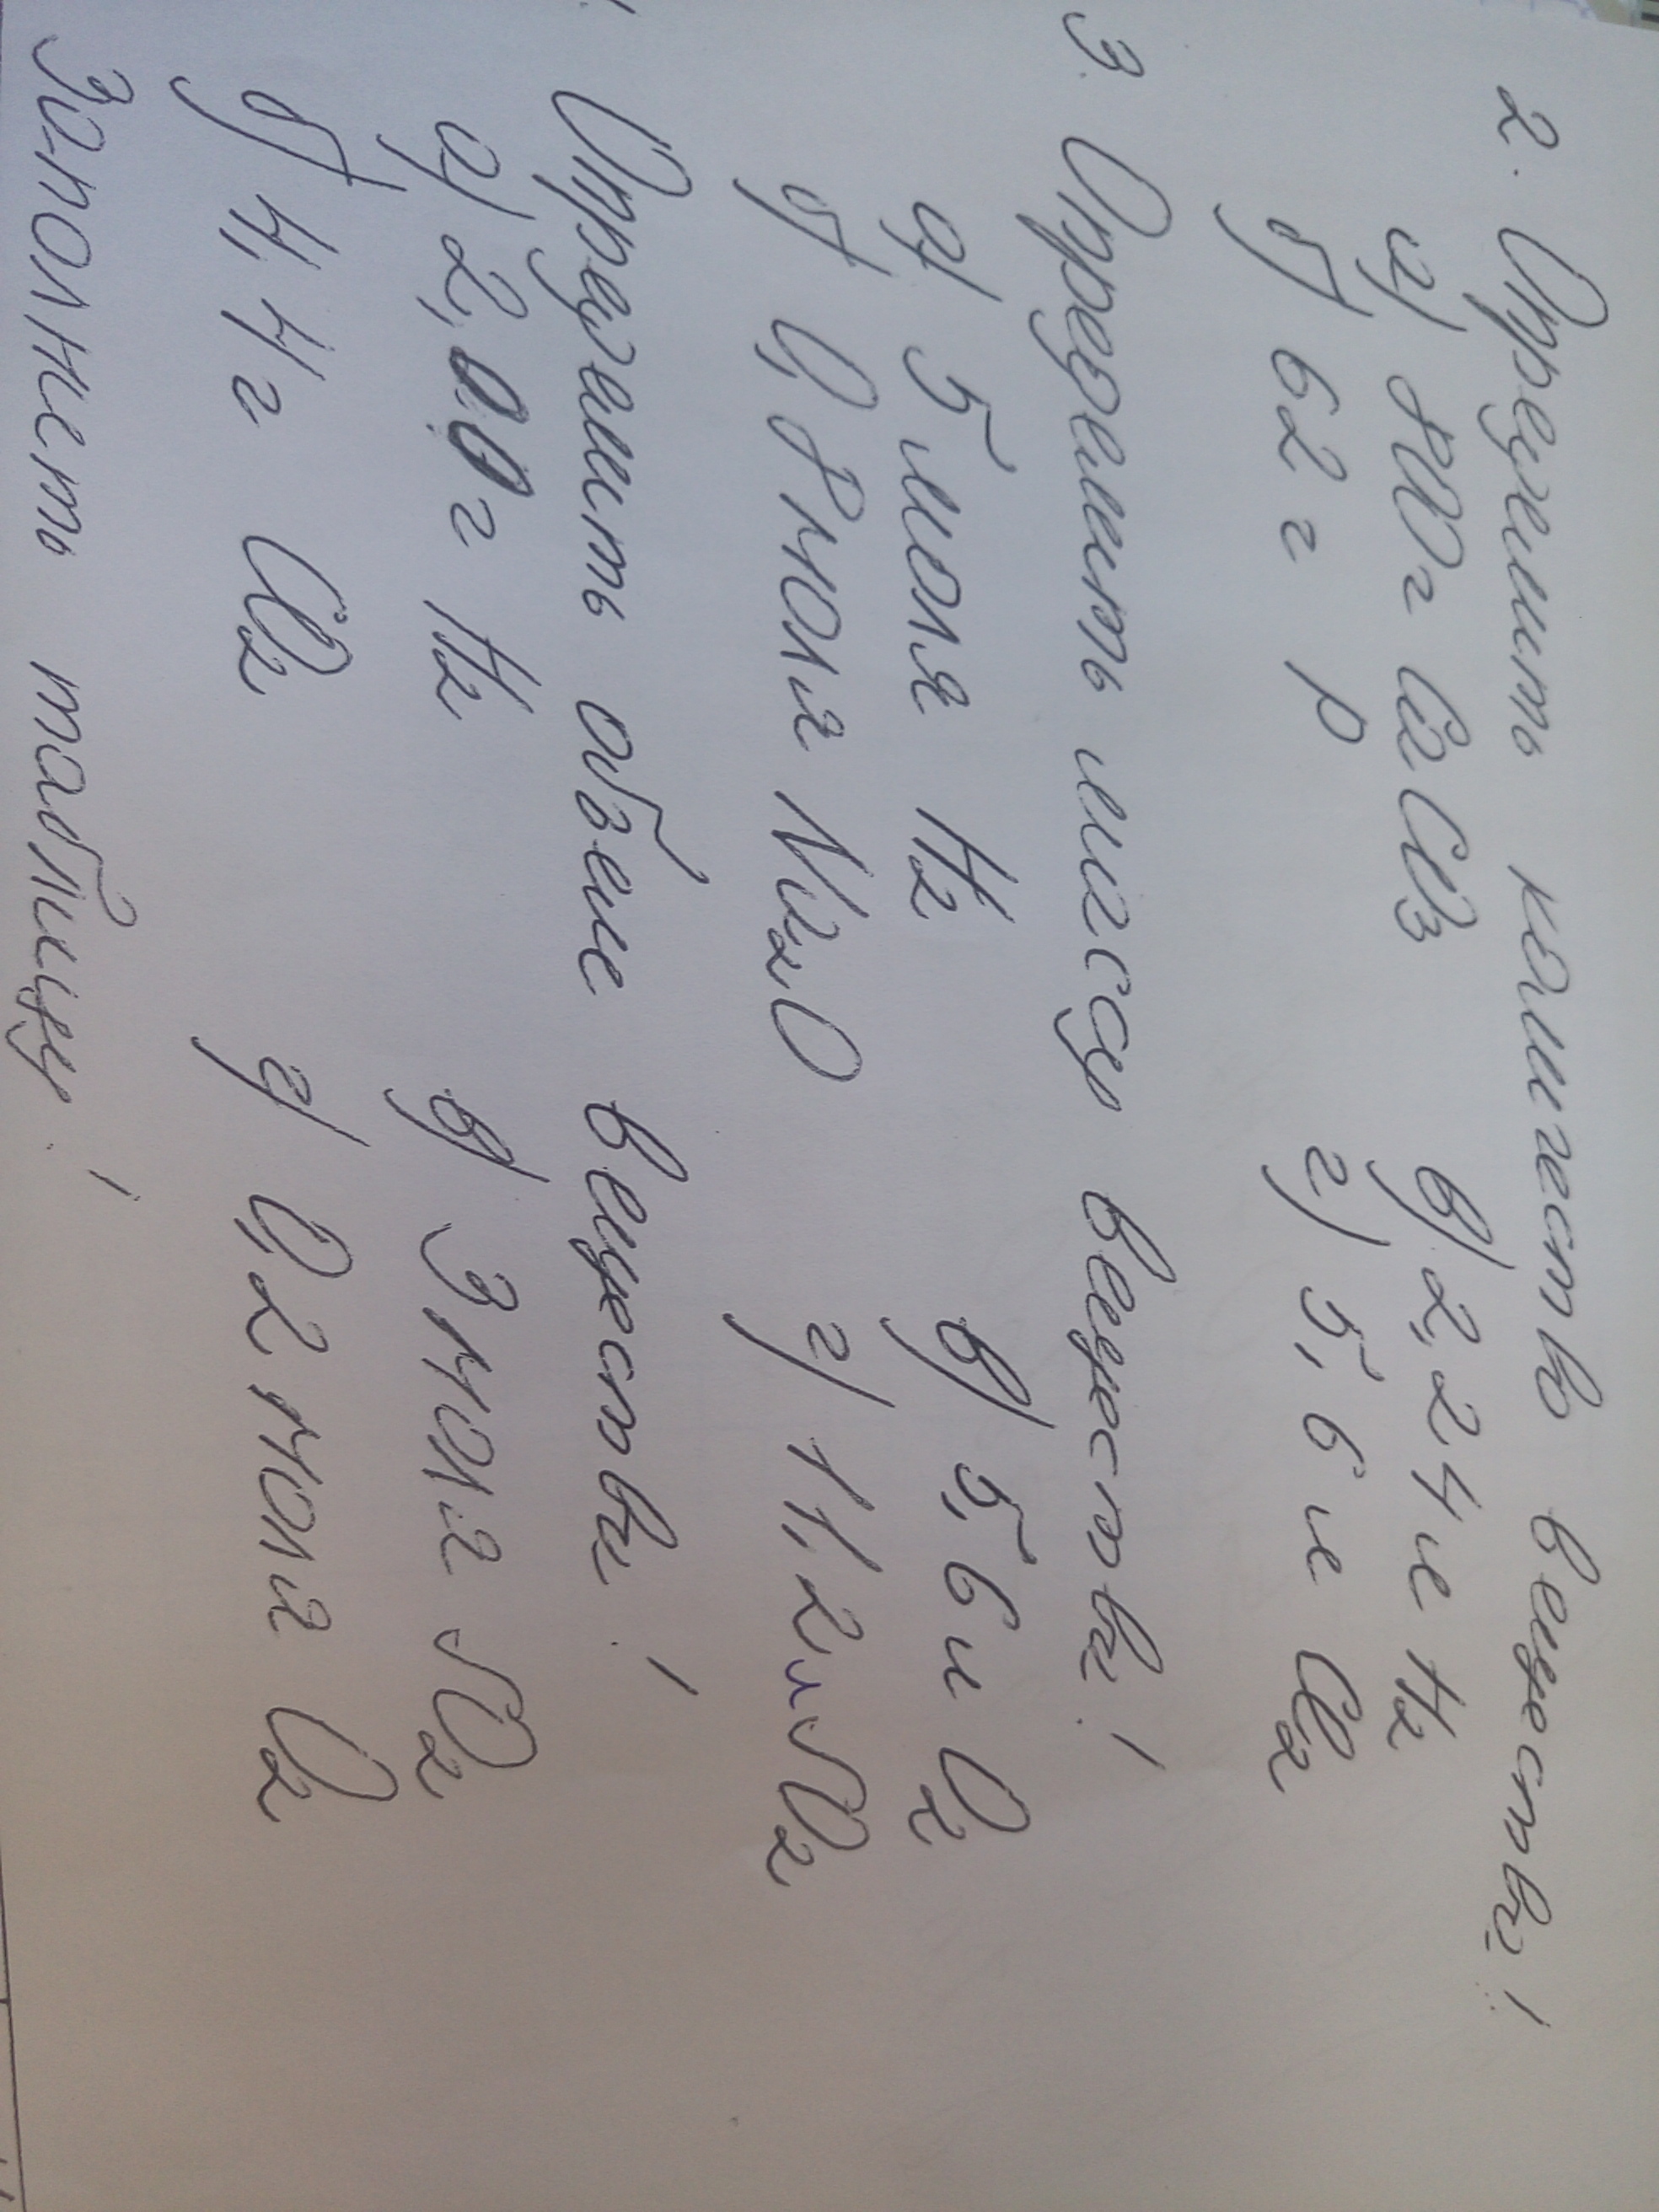 2. Определить количество вещества!
а) 800г CaCO3 в) 2,24 л H2
б) 62 г P г) 5,6 л Cl2
3. Определить массу вещества!
а) 5 моля H2 в) 5,6 л O2
б) 0,8 моля Na2O г) 11,2 л SO2
Определить объем вещества!
а) 2,00 г H2 в) 3 моля SO2
б) 4,4 г CO2 г) 0,2 моля O2
Заполнить таблицу!